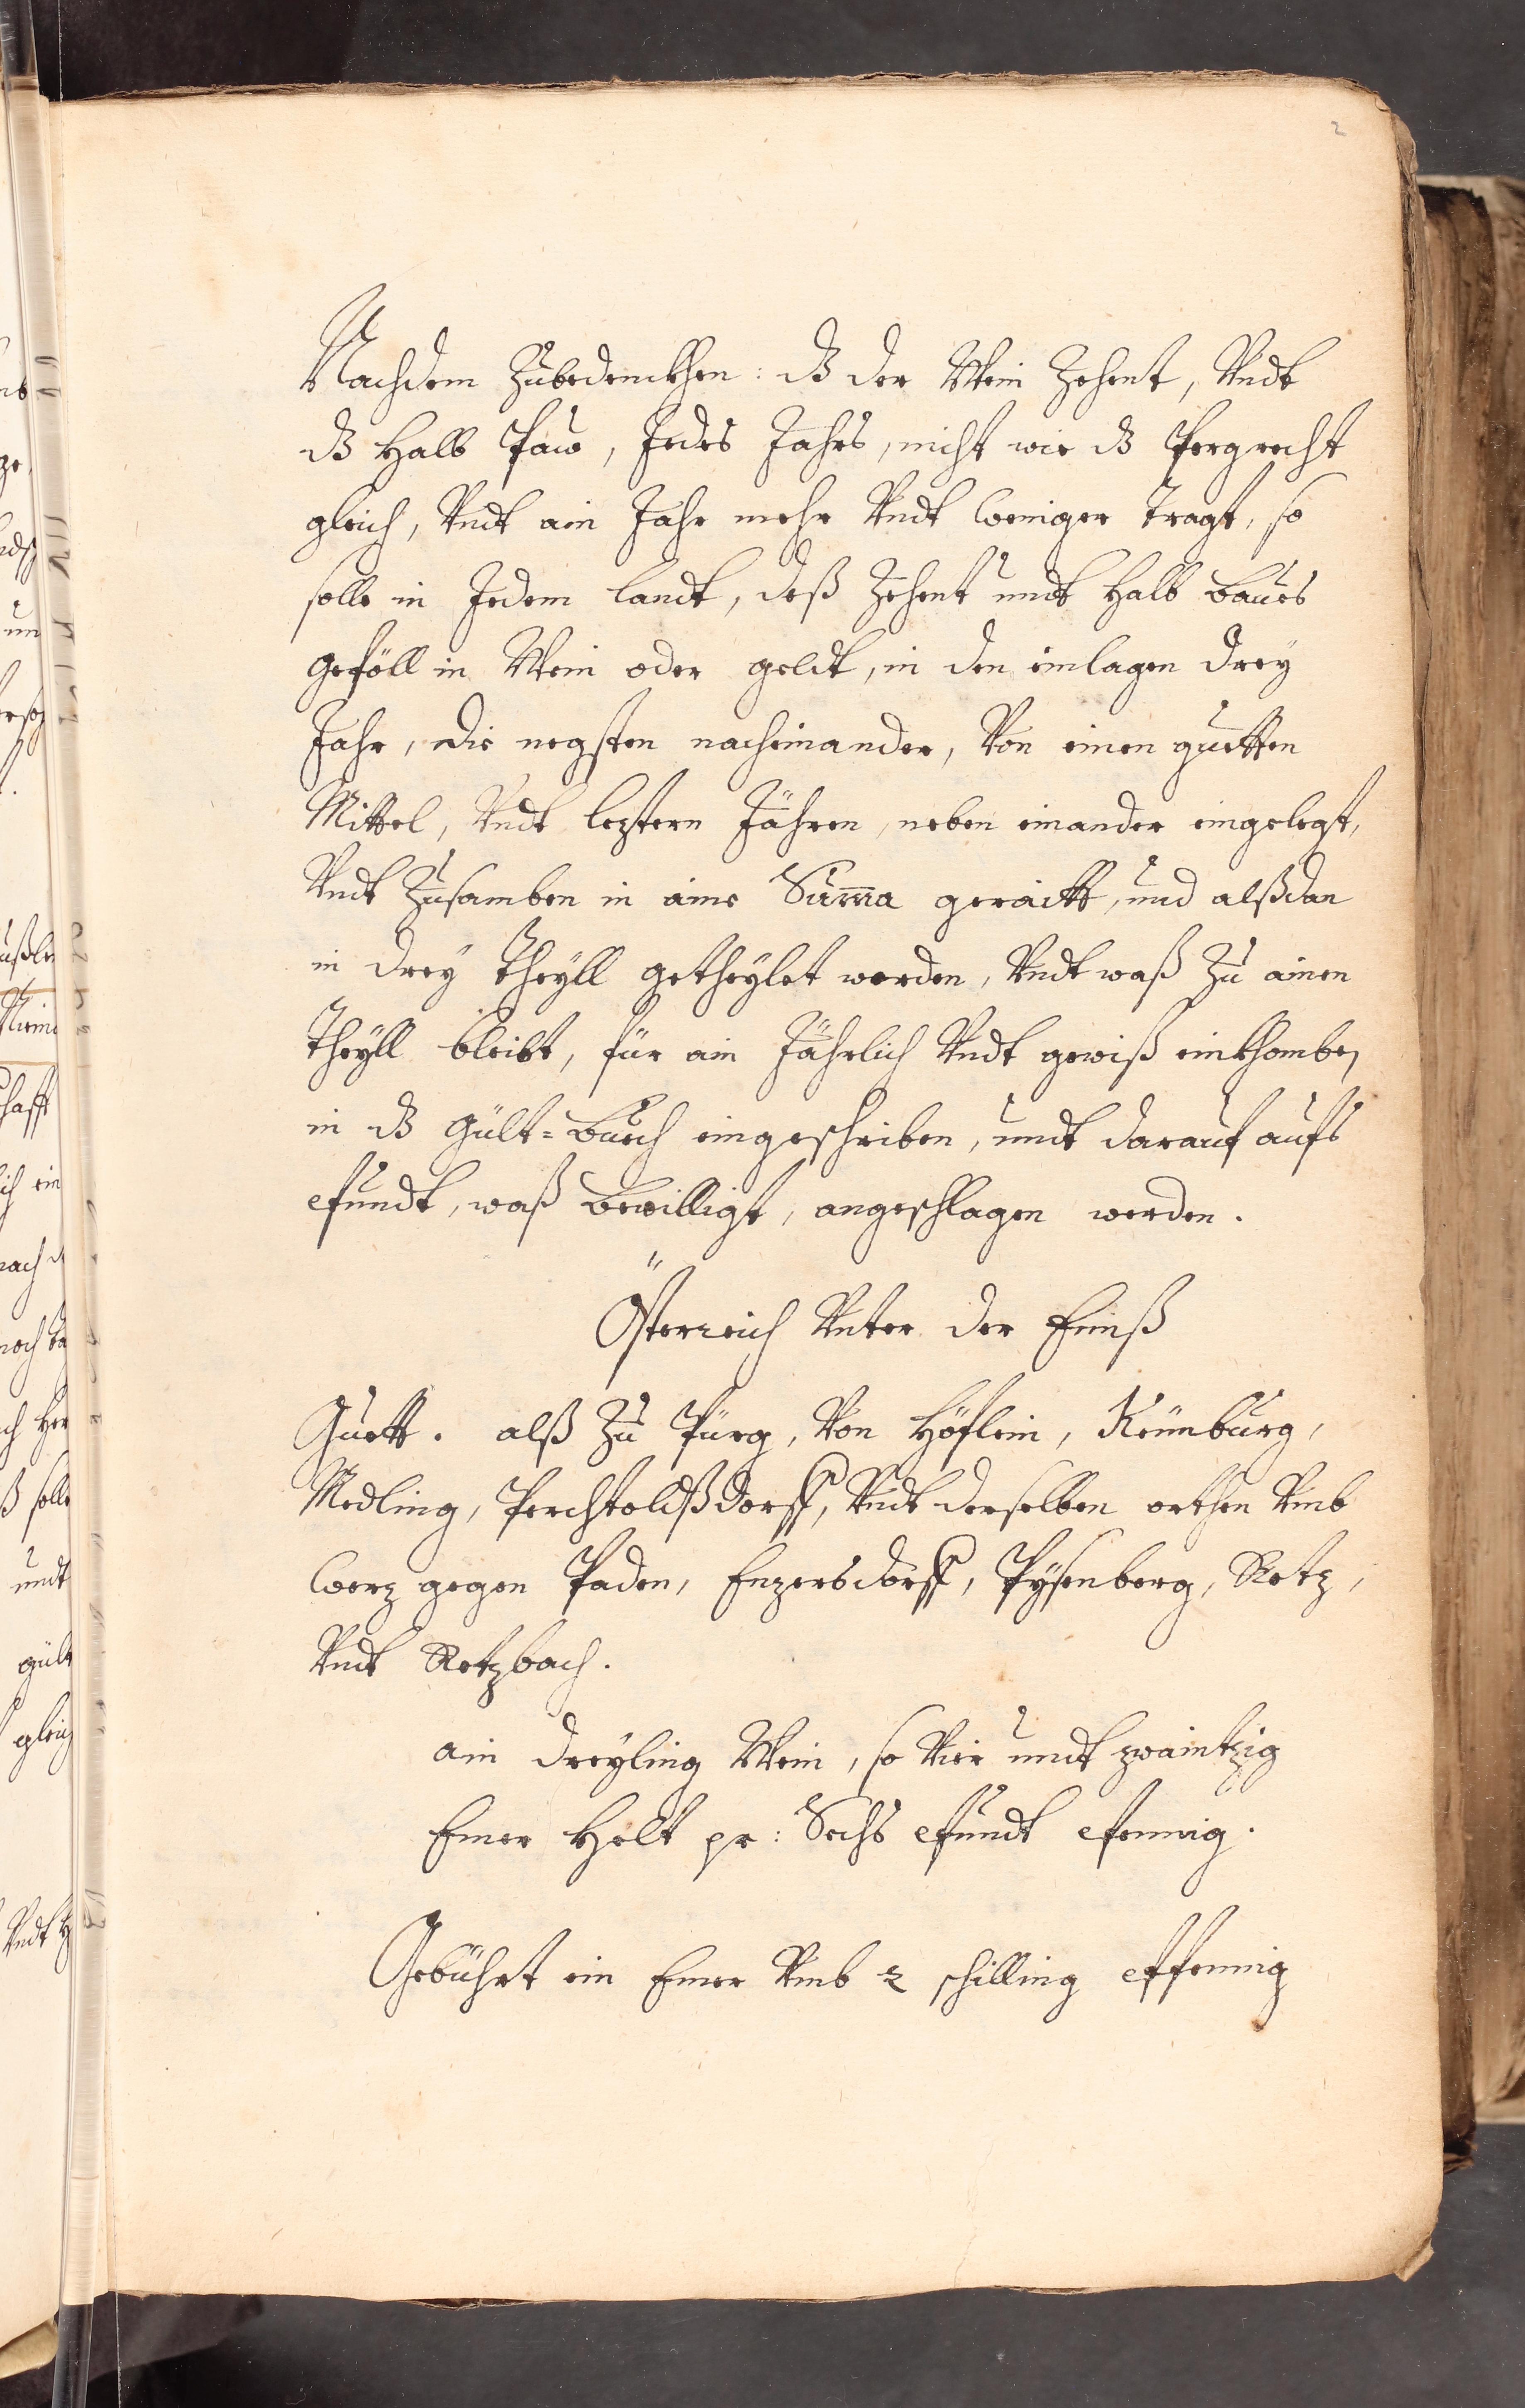 2
Nachdem Zubedenckhen: dß der Wein Zehent, Vndt
dß Halb Paw, Jedes Jahrs, nicht wie dß Pergrecht
gleich, Vndt ain Jahr mehr Vndt weniger tragt, so
solle in Jedem landt, deß Zehent undt Halb baues
geföll in Wein oder geldt, in den einlagen drey
Jahr, die negsten nacheinander, Von einen guetten
Mittel, Vndt leztern Jahren, neben einander eingelegt,
Vndt Zusamben in aine Sum̃a geraitt, und alßdan
in drey theyll getheylet werden, Vndt waß Zu ainen
theyll bleibt, für ain Jährlich Vndt gewiß einkhomben
in dß gült=buech eingeschriben, undt darauf aufs
Pfundt, waß bewilligt, angeschlagen werden.
Österreich Vnter der Ennß
Guett. alß Zu Pürg, Von Höflein, Neünburg,
Medling, Perchtoldßdorff, Vndt derselben orthen Vmb
werz gegen Paden, Enzersdorff, Pysenberg, Retz,
Vndt Retzbach.
ain Dreyling Wein, so Vier undt zwaintzig
Emer Helt pr: Sechs Pfundt Pfennig.
Gebührt ein Emer Vmb 2 schilling Pfennig